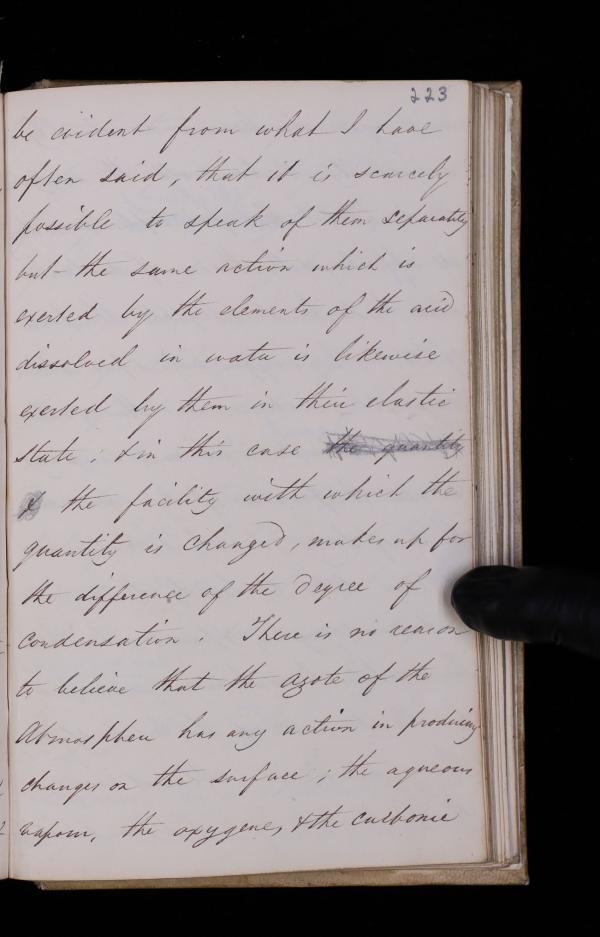 223
be evident from what I have
often said, that it is scarcely
possible to speak of them separately
but the same action which is
exerted by the elements of the acid
dissolved in water is likewise
exerted by them in their elastic
state; & in this case the quantity
& the facility with which the
quantity is changed, makes up for
the difference of the degree of
condensation. There is no reason
to believe that the azote of the
Atmosphere has any action in producing
changes on the surface; the aqueous
vapour, the oxygene, & the carbonic